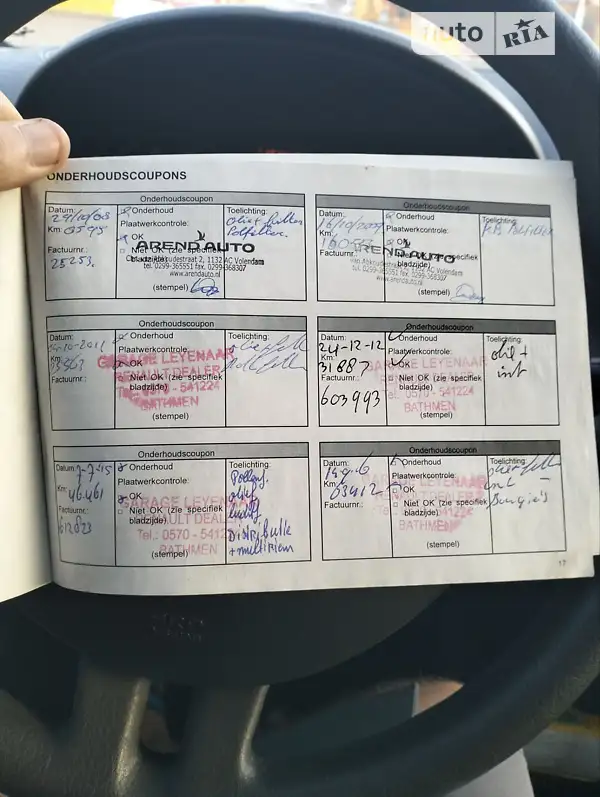 auto RIA
ONDERHOUDSCOUPONS
Onderhoudscoupon
Datum:
29/10/08
Km:
Factuurnr.:
25253.
Onderhoud
Plaatwerkcontrole:
OK
Niet OK (zie specifiek
bladzijde)
AREND AUTO
1132 AC Volendam
tel. 0299-365551 fax. 0299-368307
www.arendauto.nl
(stempel)
Toelichting:
Olie + filter
Polfilter.
Onderhoudscoupon
Datum:
Km:
Factuurnr.:
Onderhoud
Plaatwerkcontrole:
OK
Niet OK (zie specifiek
bladzijde)
AREND AUTO
1132 AC Volendam
tel. 0299-365551 fax. 0299-368307
www.arendauto.nl
(stempel)
Toelichting:
Onderhoudscoupon
Datum:
Km:
Factuurnr.:
Onderhoud
Plaatwerkcontrole:
OK
Niet OK (zie specifiek
bladzijde)
GARAGE LEYENAAR
RENAULT DEALER
Tel.: 0570 - 541224
BATHMEN
(stempel)
Toelichting:
Onderhoudscoupon
Datum:
24-12-12
Km:
31887
Factuurnr.:
603993
Onderhoud
Plaatwerkcontrole:
OK
Niet OK (zie specifiek
bladzijde)
GARAGE LEYENAAR
RENAULT DEALER
Tel.: 0570 - 541224
BATHMEN
(stempel)
Toelichting:
olie +
int
Onderhoudscoupon
Datum:
7-7-15
Km:
46.461
Factuurnr.:
612823
Onderhoud
Plaatwerkcontrole:
OK
Niet OK (zie specifiek
bladzijde)
GARAGE LEYENAAR
RENAULT DEALER
Tel.: 0570 - 541224
BATHMEN
(stempel)
Toelichting:
Distributie
+ multiriem
Onderhoudscoupon
Datum:
Km:
Factuurnr.:
Onderhoud
Plaatwerkcontrole:
OK
Niet OK (zie specifiek
bladzijde)
GARAGE LEYENAAR
RENAULT DEALER
BATHMEN
(stempel)
Toelichting:
17